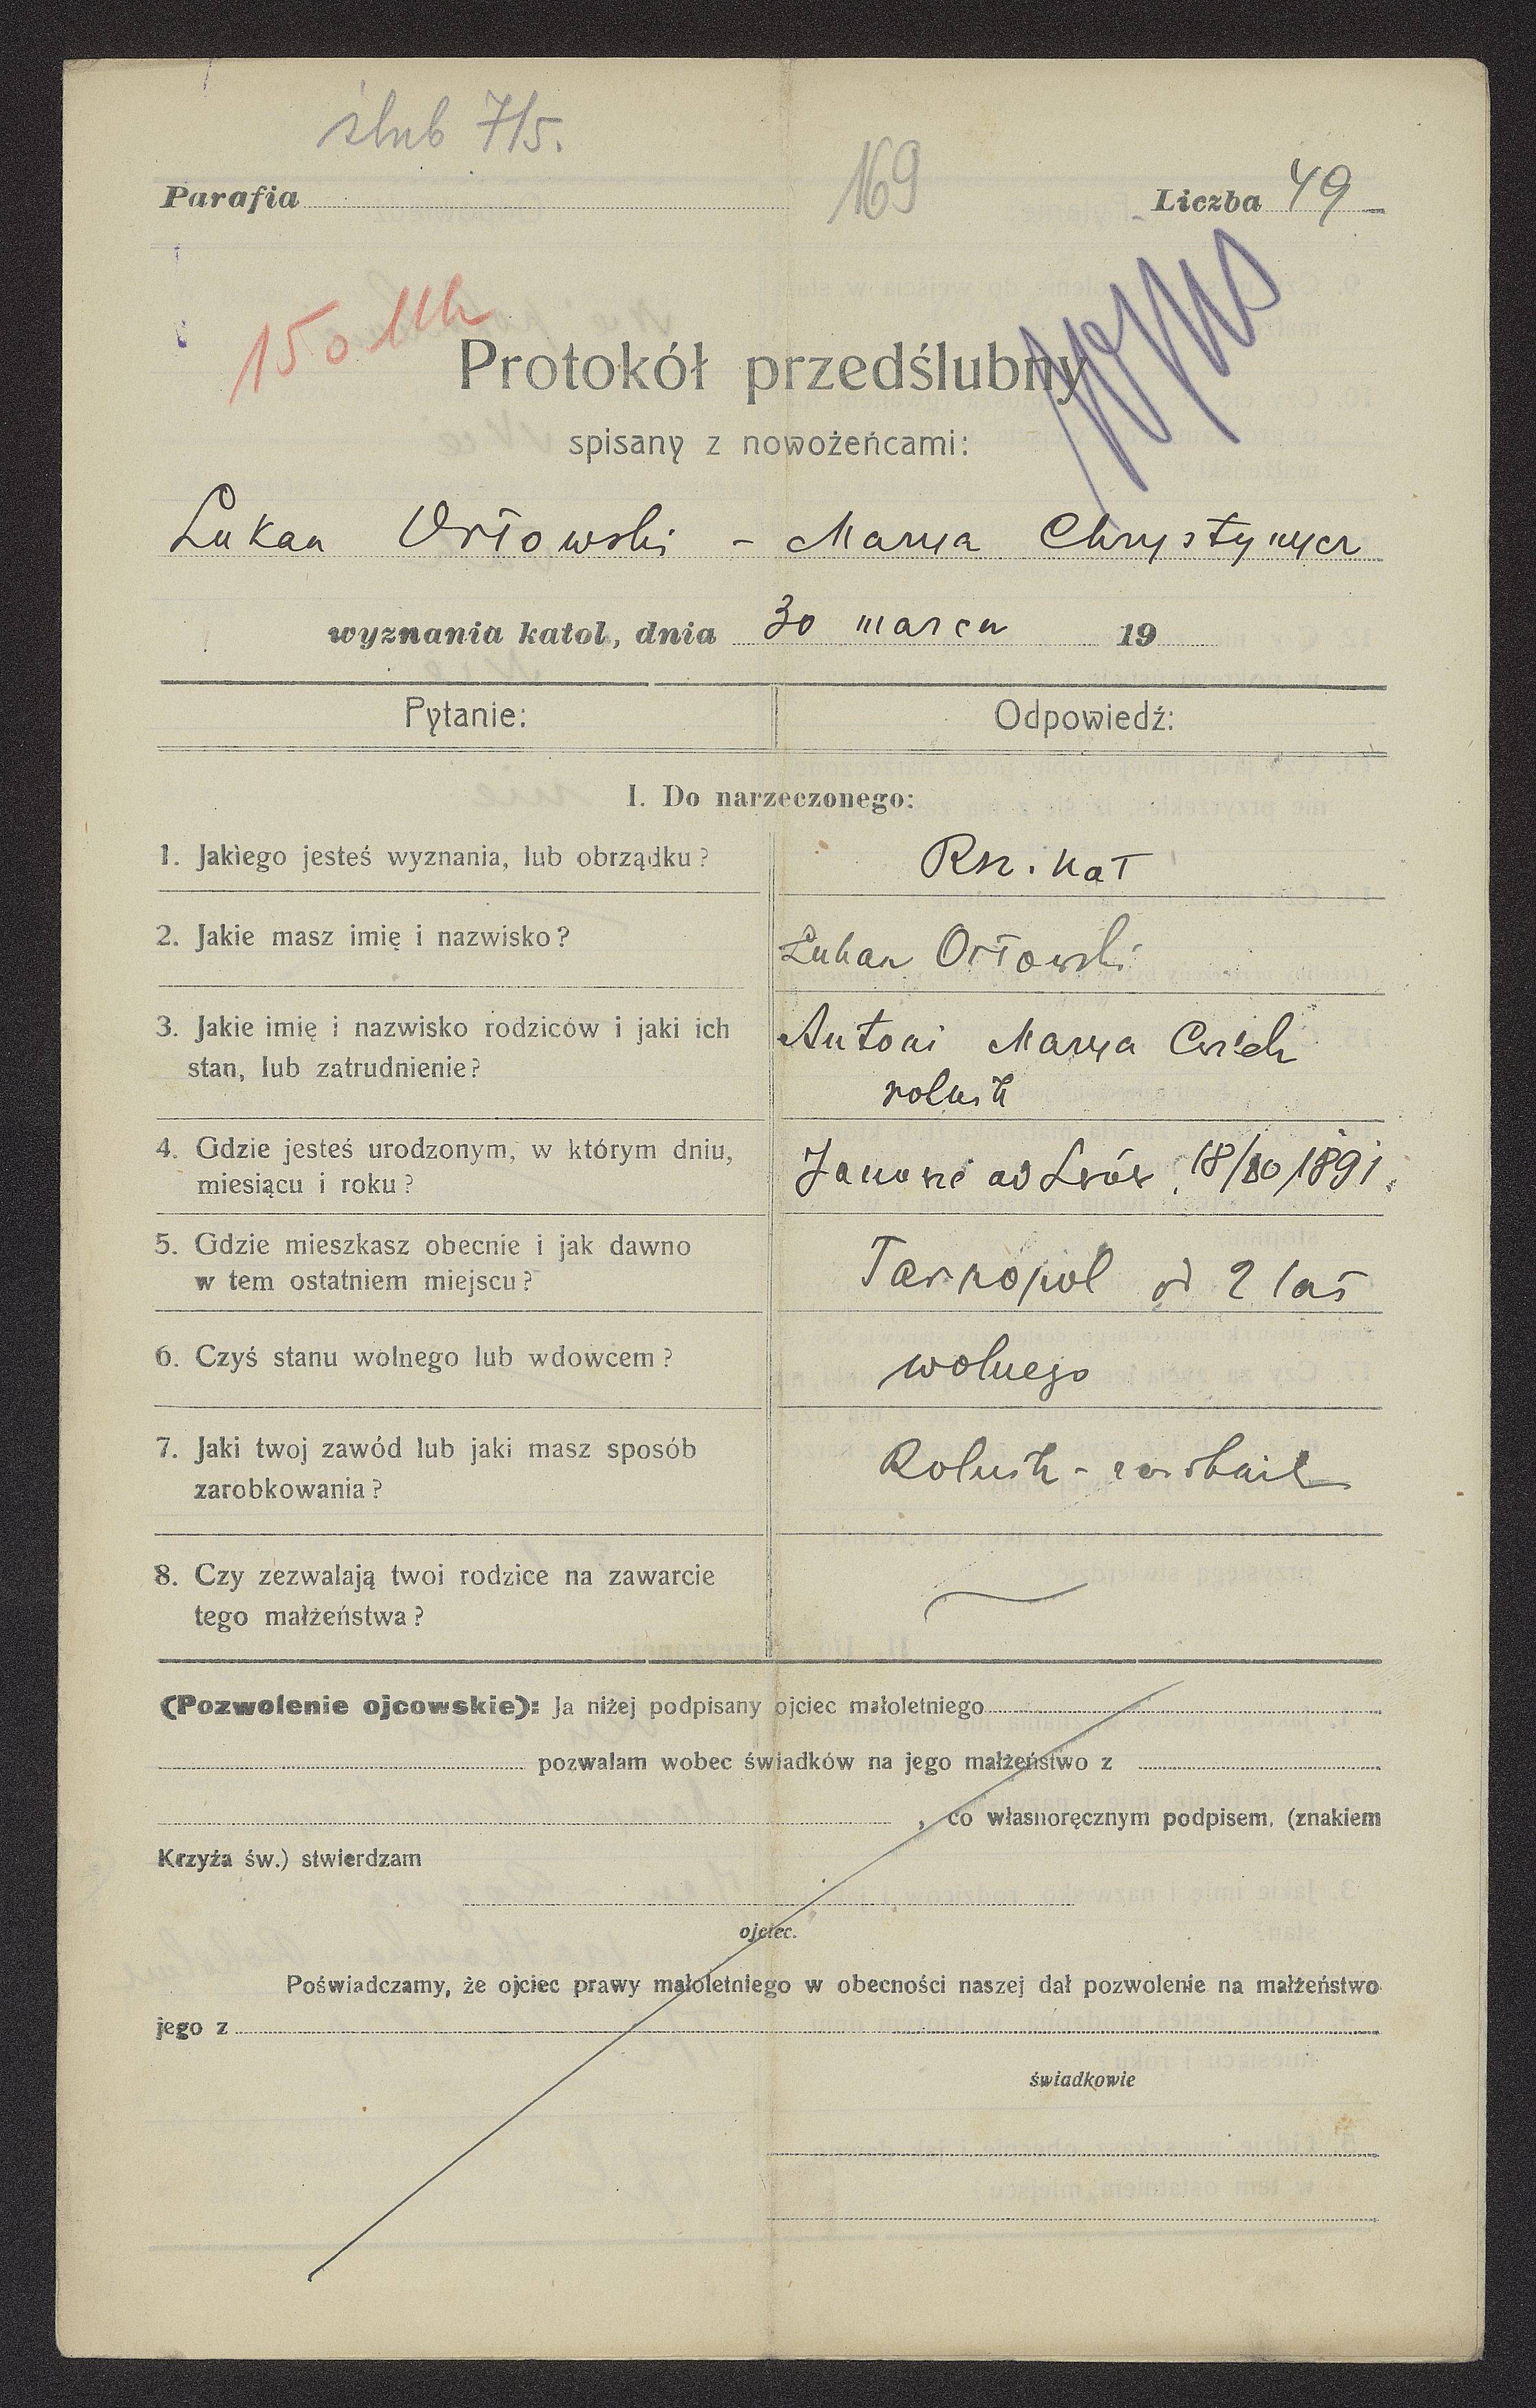 ślub 7/5.
169
Parafia
Liczba 49
150 Mk
Protokół przedślubny
spisany z nowożeńcami:
Łukasz Orłowski - Marya
wyznania katol, dnia 30 marca 19
Pytanie: Odpowiedź:
I. Do narzeczonego:
1. Jakiego jesteś wyznania, lub obrządku? Rz. kat
2. Jakie masz imię i nazwisko? Łukasz Orłowski
3. Jakie imię i nazwisko rodziców i jaki ich Antoni Marya
stan, lub zatrudnienie? rolnik
4. Gdzie jesteś urodzonym, w którym dniu,
miesiącu i roku? 1891.
5. Gdzie mieszkasz obecnie i jak dawno
w tem ostatniem miejscu? Tarnopol od 2 lat
6. Czyś stanu wolnego lub wdowcem? wolnego
7. Jaki twoj zawód lub jaki masz sposób Rolnik -
zarobkowania?
8. Czy zezwalają twoi rodzice na zawarcie
tego małżeństwa?
(Pozwolenie ojcowskie): Ja niżej podpisany ojciec małoletniego
pozwalam wobec świadków na jego małżeństwo z
, co własnoręcznym podpisem, (znakiem
Krzyża św.) stwierdzam
ojciec.
Poświadczamy, że ojciec prawy małoletniego w obecności naszej dał pozwolenie na małżeństwo
jego z
świadkowie